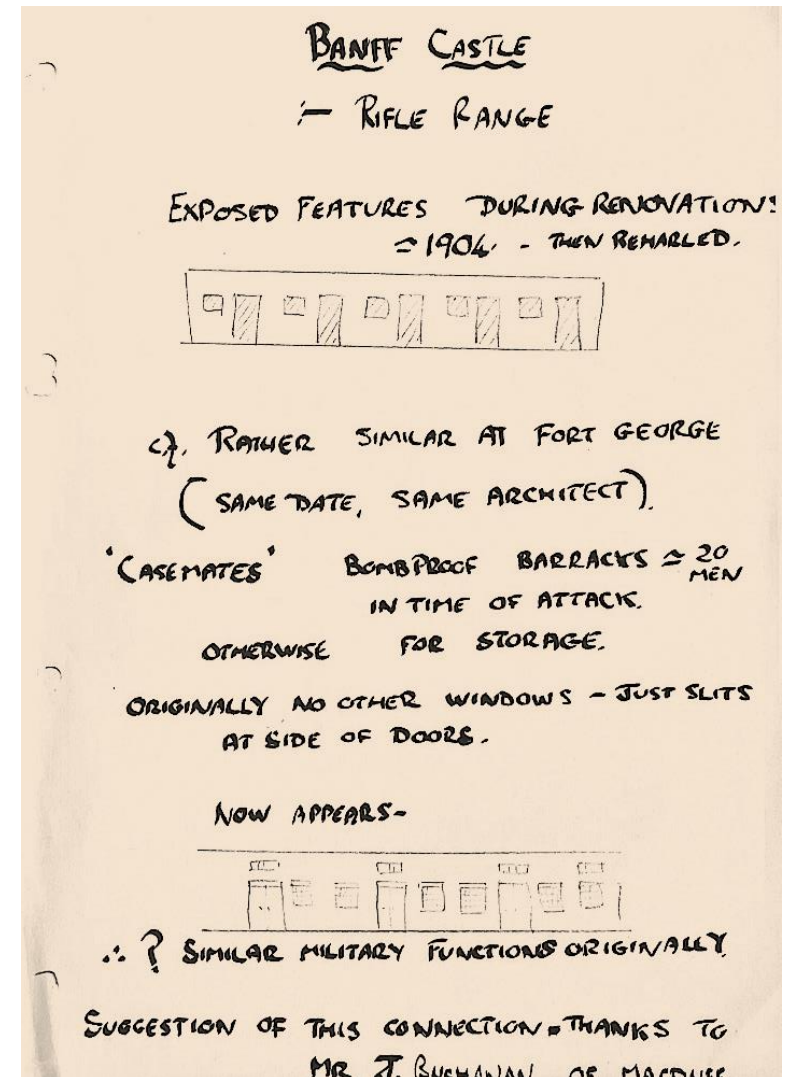 BANFF CASTLE
:- RIFLE RANGE
EXPOSED FEATURES DURING RENOVATION:
≃ 1904. - THEN REHARLED.
cf. RATHER SIMILAR AT FORT GEORGE
(SAME DATE, SAME ARCHITECT).
'CASEMATES' BOMBPROOF BARRACKS ≃ 20 MEN
IN TIME OF ATTACK.
OTHERWISE FOR STORAGE.
ORIGINALLY NO OTHER WINDOWS - JUST SLITS
AT SIDE OF DOORS.
NOW APPEARS-
∴ ? SIMILAR MILITARY FUNCTIONS ORIGINALLY.
SUGGESTION OF THIS CONNECTION = THANKS TO
MR J. BUCHANAN OF MACDUFF